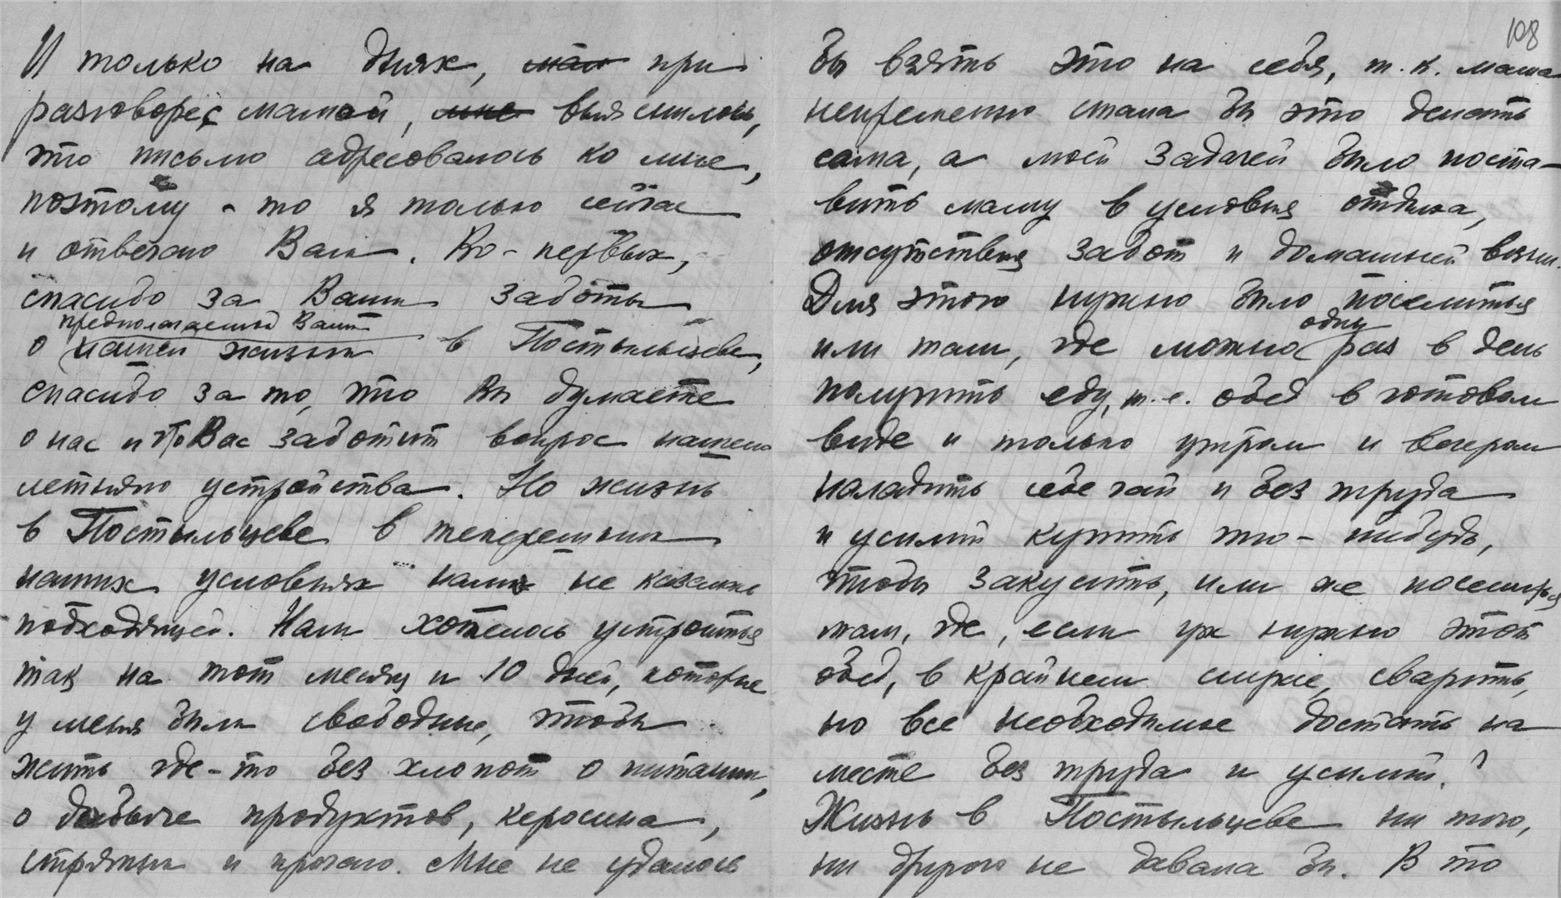 И только на днях, ~~мам~~ при
разговоре с мамой, ~~мне~~ выяснилось,
что письмо адресовалось ко мне,
поэтому-то я только сейчас
и отвечаю Вам. Во-первых,
спасибо за Ваши заботы
предполагаемой Вами
о нашей жизни в Постыльцеве,
спасибо за то, что Вы думаете
о нас и что Вас заботит вопрос нашего
летнего устройства. Но жизнь
в Постыльцеве в теперешних
наших условиях нам не казалась
подходящей. Нам хотелось устроиться
так на тот месяц и 10 дней, которые
у меня были свободные, чтобы
жить где-то без хлопот о питании,
о добыче продуктов, керосина,
стряпни и прочего. Мне не удалось
108
бы взять это на себя, т.к. мама
непременно стала бы это делать
сама, а моей задачей было поста-
вить маму в условия отдыха,
отсутствия забот и домашней возни.
Для этого нужно было поселиться
или там, где можно один раз в день
получить еду, т.е. обед в готовом
виде и только утром и вечером
наладить себе чай и без труда
и усилий купить что-нибудь,
чтобы закусить, или же поселиться
там, где, если уж нужно этот
обед, в крайнем случае, сварить,
но все необходимые достать на
месте без труда и усилий.
Жизнь в Постыльцеве ни того,
ни другого не давала бы. В то